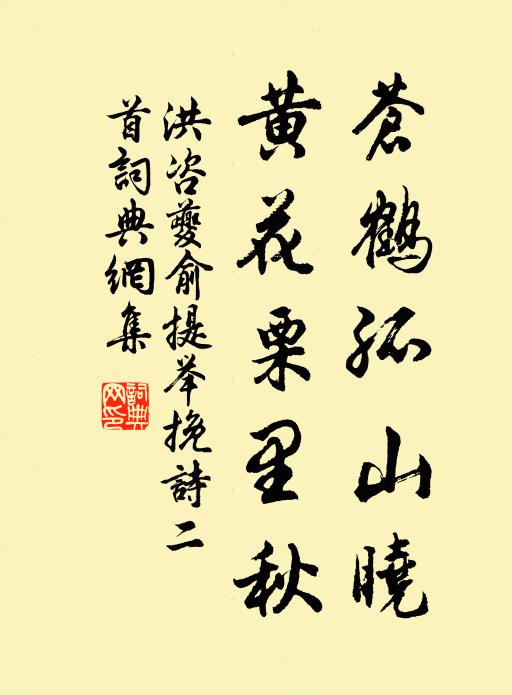 蒼鶴孤山曉
黄花栗里秋
洪咨夔俞提举挽詩二
首詞典網集
詞典
网印